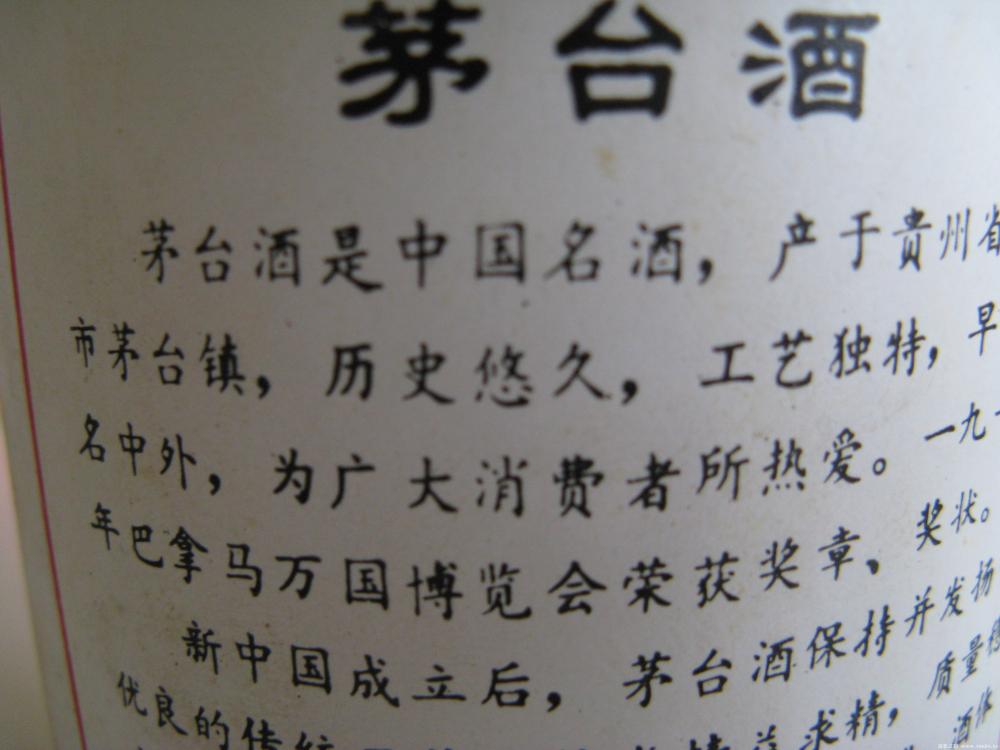 茅台酒
茅台酒是中国名酒，产于贵州省
市茅台镇，历史悠久，工艺独特，早
名中外，为广大消费者所热爱。一九一
年巴拿马万国博览会荣获奖章、奖状。
新中国成立后，茅台酒保持并发扬
优良的传统 求精，质量
酒体